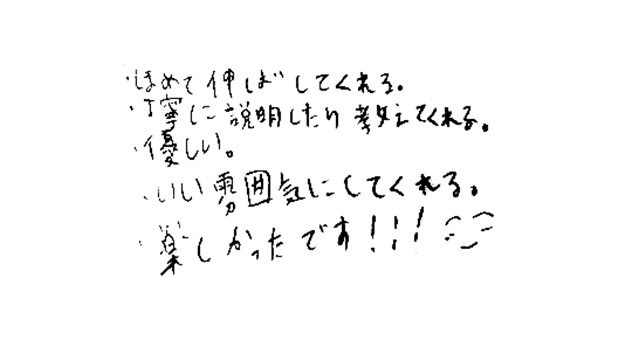 ・ほめて伸ばしてくれる。
・丁寧に説明したり教えてくれる。
・優しい。
・いい雰囲気にしてくれる。
・楽しかったです!!!